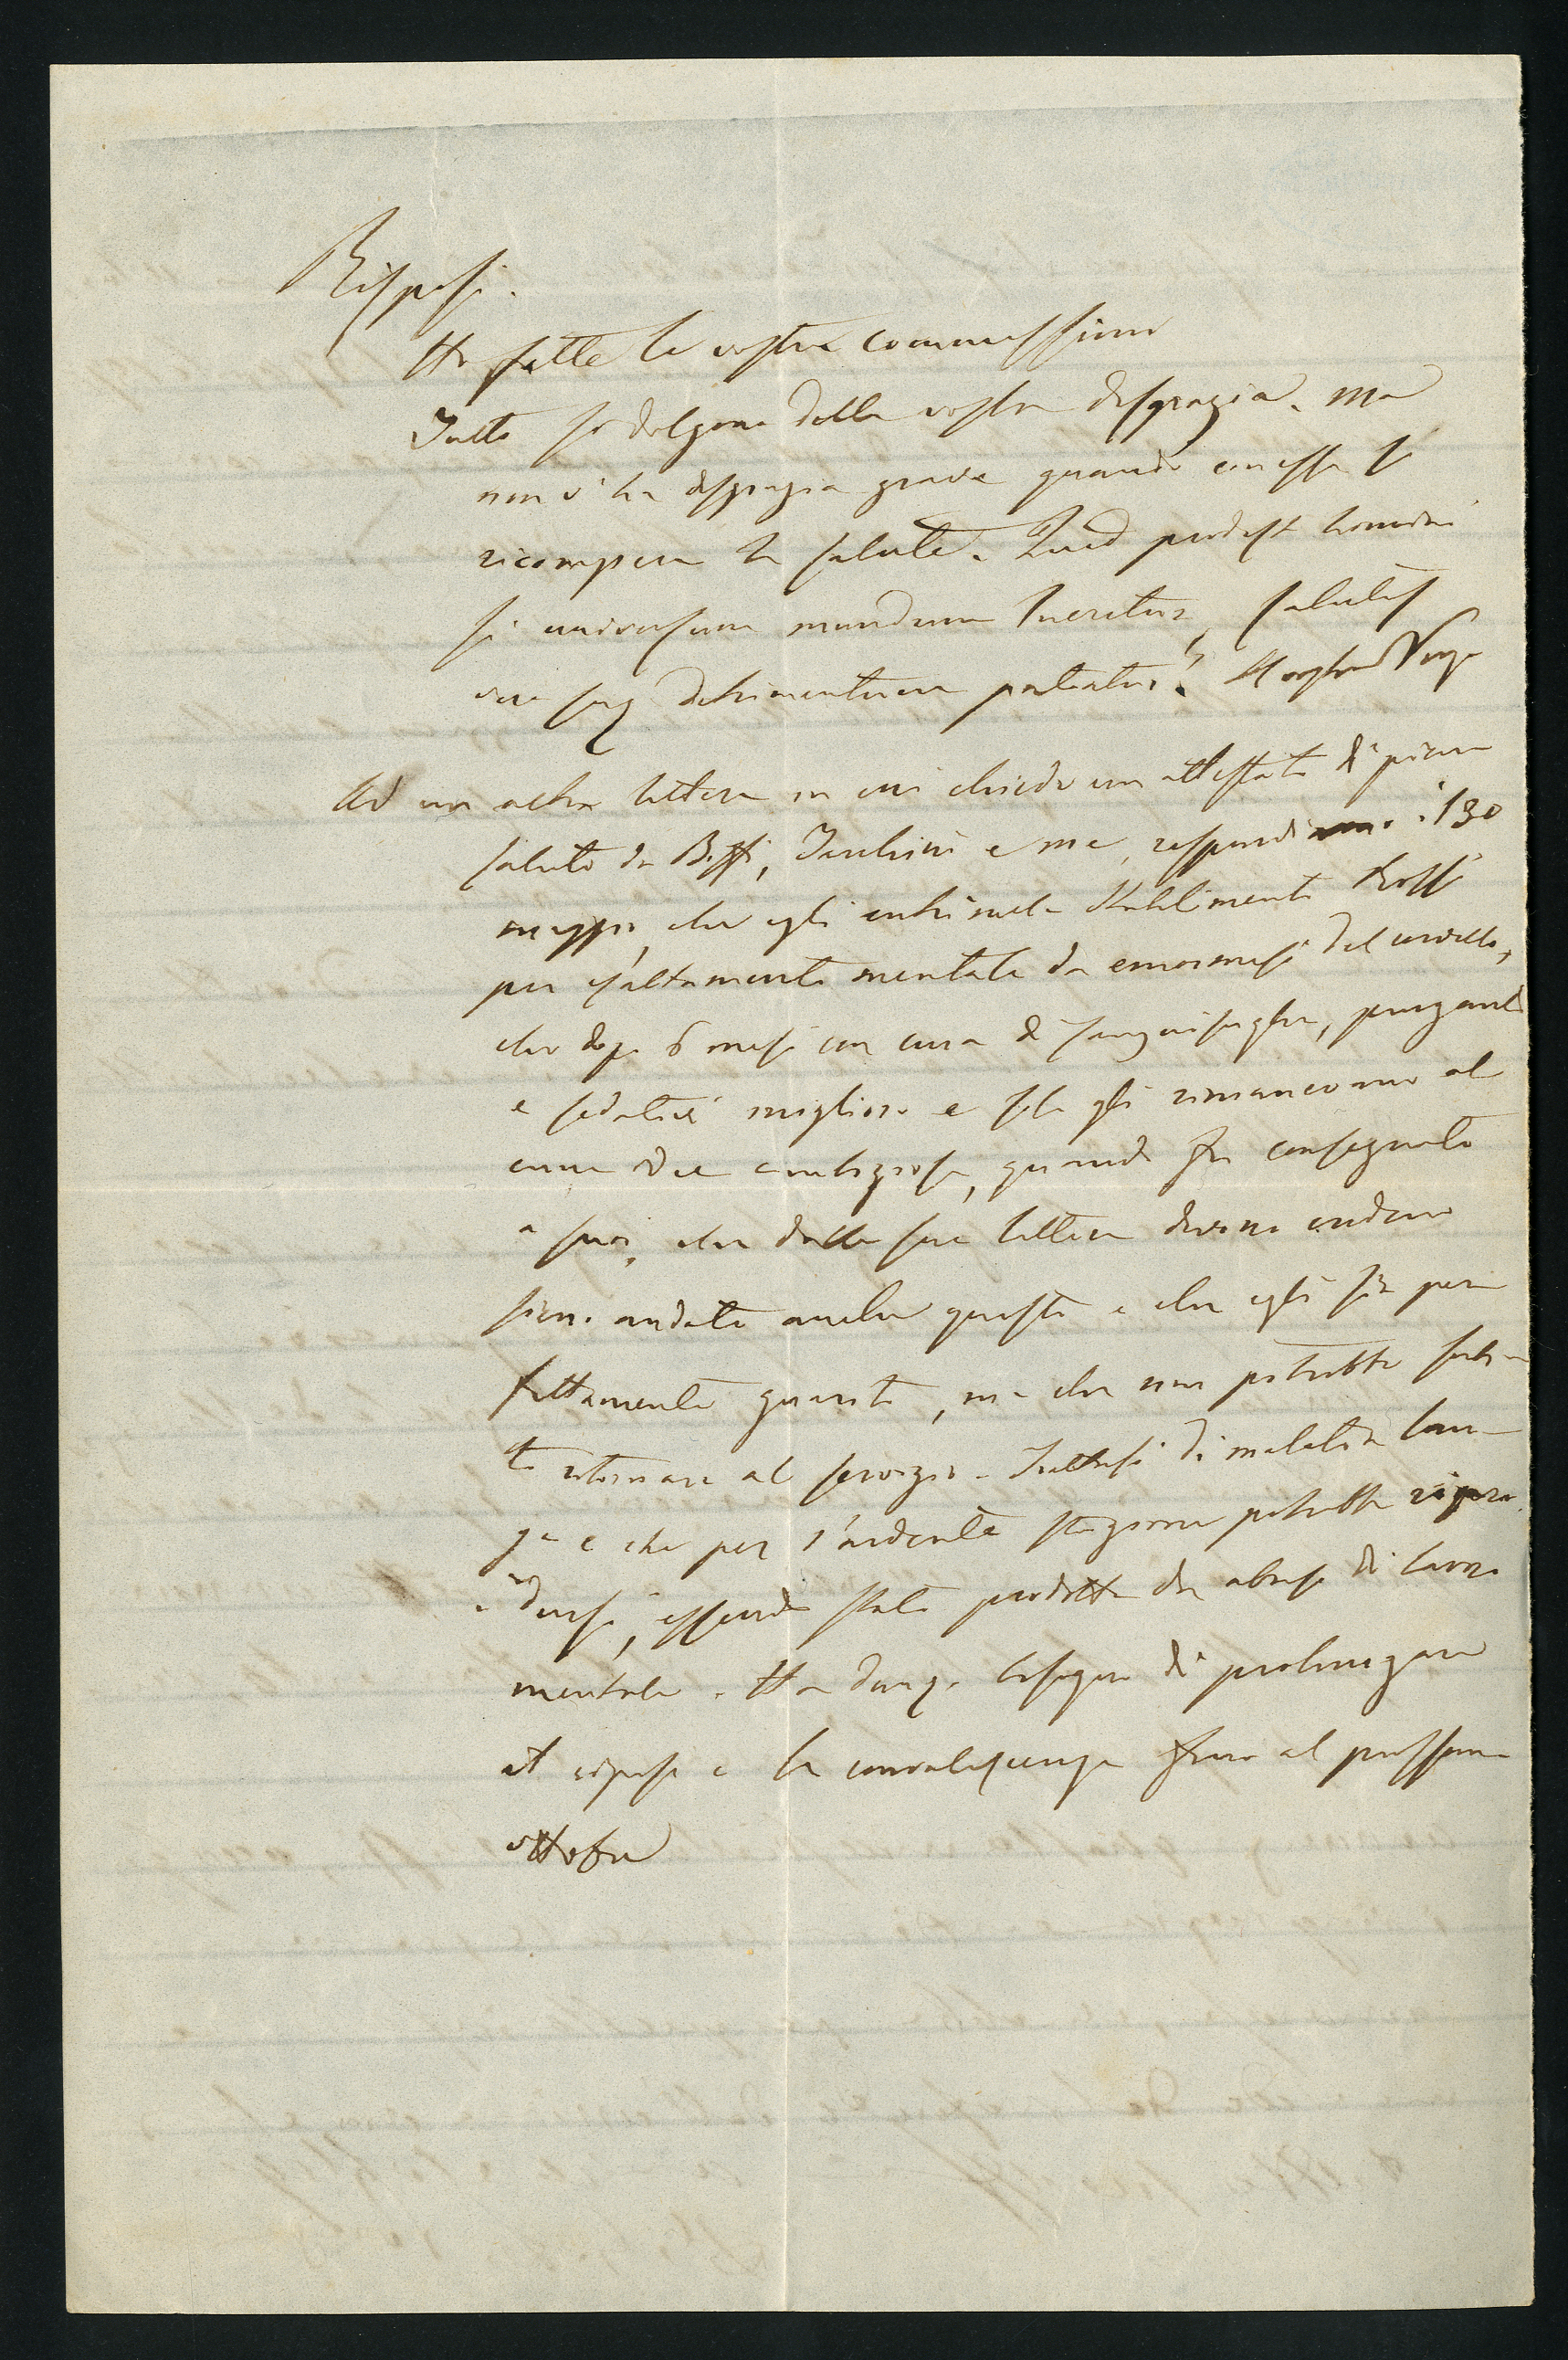 Risposi.
Ho fatte le vostre commissioni
Tutti si dolgono della vostra disgrazia. Ma
non v'ha disgrazia grave quando con essa si
ricompera la salute. Quid prodest homini
si universum mundum lucretur, salutis
vero suæ detrimentum patiatur?
Ad una altra lettera in cui chiede un attestato di piena
salute da Biffi, Tarchini e me, rispondi il 30
maggio, che egli entrò nello Stabilimento Rossi
per esaltamento mentale da emormesi del cervello,
che dopo 6 mesi con cura di sanguisughe, purganti
e sedativi migliorò e solo gli rimanevano al
cune idee ambiziose, quando fu consegnato
a suoi, che dalle sue lettere devono credere
siano andate anche queste e che egli sia per
fettamente guarito, ma che non potrebbe subi-
to ritornare al servizio. Trattasi di malattia lun-
ga e che per l'ardente stagione potrebbe ripro
dursi, essendo stata prodotta da abuso di lavoro
mentale. Ha dunq. bisogno di prolungare
il riposo e la convalescenza fino al prossimo
ottobre